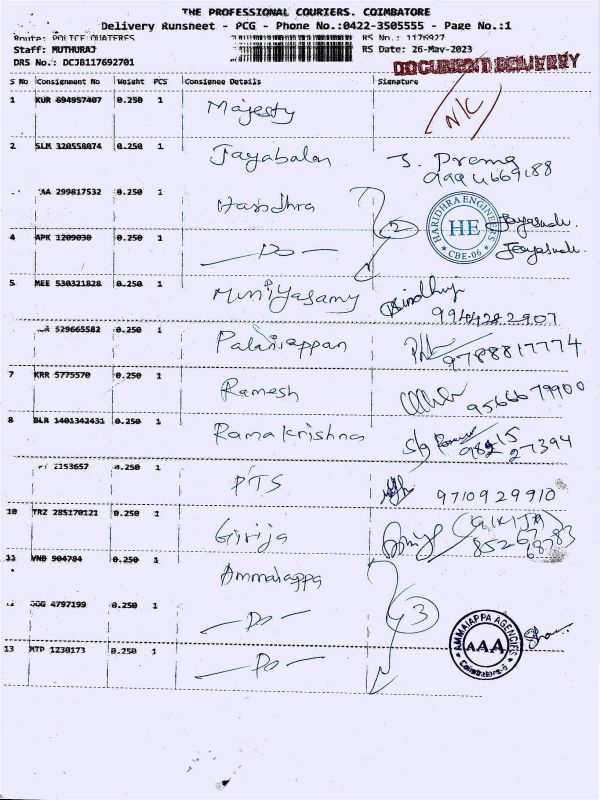 THE PROFESSIONAL COURIERS. COIMBATORE
Delivery Runsneet - PCG - Phone No.:0422-3505555 - Page No.:1
Route: POLICE QUATERES RS No.: 1176927
Staff: MUTHURAJ RS Date: 26-May-2023
DRS No.: DCJB117692701
DOCUMENT DELIVERY
S No Consignment No Weight PCS Consignee Details Signature
1 KUR 694957407 0.250 1 Majesty N/C
2 SLM 320558074 0.250 1 Jayabalan J. Prema
AA 299817532 0.250 1 Haridhra 2 HARIDHRA ENGINEERS HE CBE-06
4 APK 1209030 0.250 1 — Do —
5 MEE 530321828 0.250 1 Muniyasamy Bindhuja
9944282907
529665582 0.250 1 Palaniappan 9788817774
7 KRR 5775570 0.250 1 Ramesh 9566679900
8 BLR 1401342431 0.250 1 Rama Krishna 98215 27394
2153657 0.250 1 PTS 9710929910
10 TRZ 285170121 0.250 1 Girija (GIRIJA)
11 VNB 904784 0.250 1 Ammaiappa
ODG 4797199 0.250 1 — Do — 3 AMMAIAPPA AGENCIES AAA Coimbatore-6
13 MTP 1230173 0.250 1 — Do —